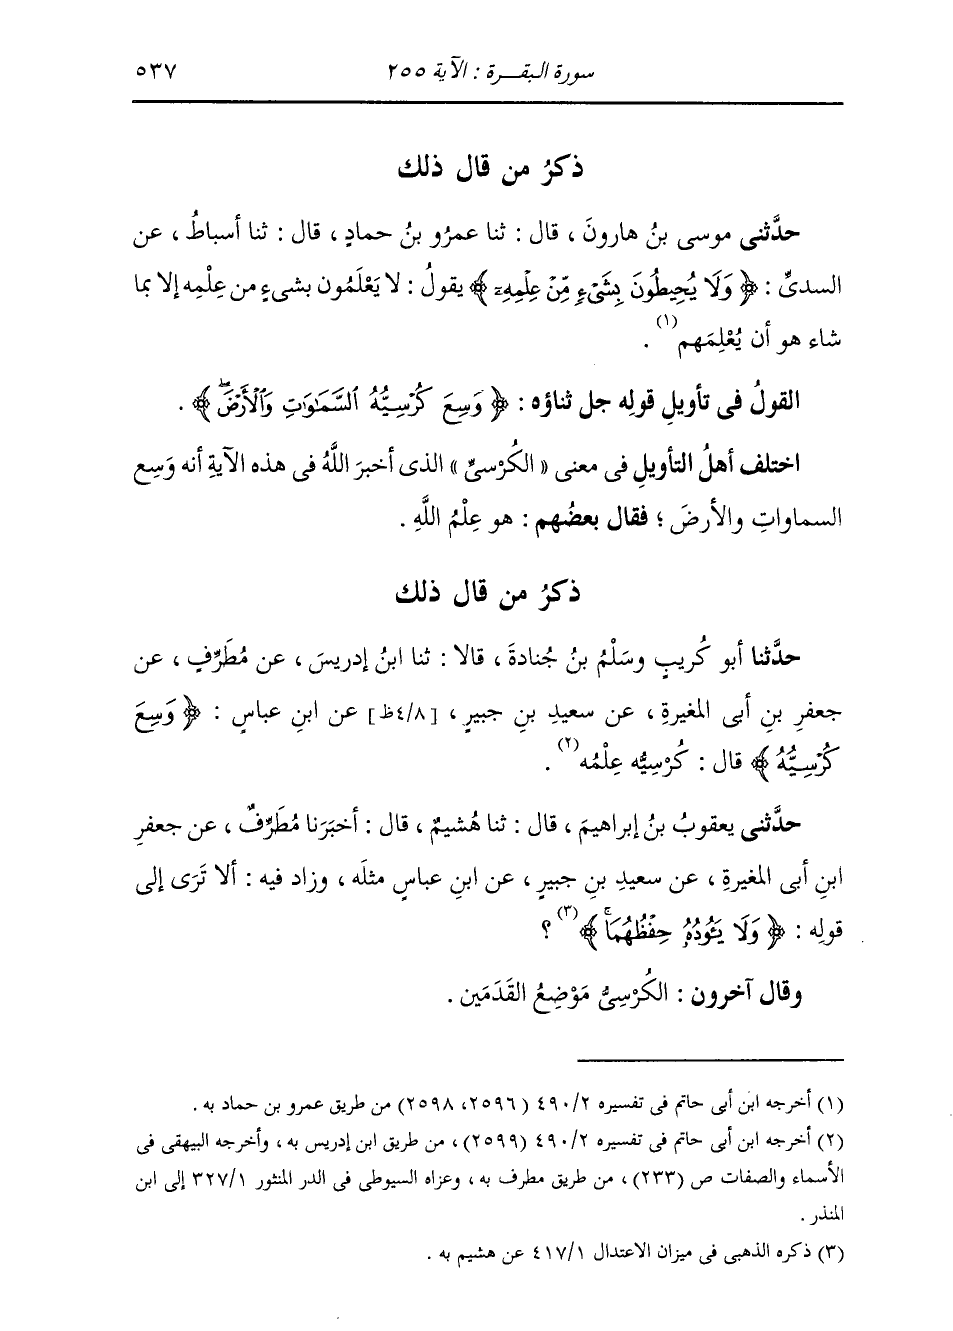 سورة البقرة : الآية ٢٥٥ ٥٣٧
ذكرُ من قال ذلك
حدَّثنى موسى بنُ هارونَ ، قال : ثنا عمرُو بنُ حمادٍ ، قال : ثنا أسباطُ ، عن
السدىِّ : ﴿ وَلَا يُحِيطُونَ بِشَىْءٍ مِّنْ عِلْمِهِۦٓ ﴾ يقولُ : لا يَعْلَمُون بشىءٍ من عِلْمِه إلا بما
شاء هو أن يُعْلِمَهم(١) .
القولُ فى تأويلِ قولِه جل ثناؤه : ﴿ وَسِعَ كُرْسِيُّهُ ٱلسَّمَٰوَٰتِ وَٱلْأَرْضَۖ ﴾ .
اختلف أهلُ التأويلِ فى معنى « الكُرْسىِّ » الذى أخبرَ اللَّهُ فى هذه الآيةِ أنه وَسِع
السماواتِ والأرضَ ؛ فقال بعضُهم : هو عِلْمُ اللَّهِ .
ذكرُ من قال ذلك
حدَّثنا أبو كُريبٍ وسَلْمُ بنُ جُنادةَ ، قالا : ثنا ابنُ إدريسَ ، عن مُطَرِّفٍ ، عن
جعفرِ بنِ أبى المغيرةِ ، عن سعيدِ بنِ جبيرٍ ، [٤/٨ظ] عن ابنِ عباسٍ : ﴿ وَسِعَ
كُرْسِيُّهُ ﴾ قال : كُرْسِيُّه عِلْمُه(٢) .
حدَّثنى يعقوبُ بنُ إبراهيمَ ، قال : ثنا هُشيمٌ ، قال : أخبَرَنا مُطَرِّفٌ ، عن جعفرِ
ابنِ أبى المغيرةِ ، عن سعيدِ بنِ جبيرٍ ، عن ابنِ عباسٍ مثلَه ، وزاد فيه : ألا تَرَى إلى
قولِه : ﴿ وَلَا يَـُٔودُهُۥ حِفْظُهُمَاۚ ﴾(٣) ؟
وقال آخرون : الكُرْسىُّ مَوْضِعُ القَدَمَين .
(١) أخرجه ابن أبى حاتم فى تفسيره ٤٩٠/٢ (٢٥٩٦، ٢٥٩٨) من طريق عمرو بن حماد به .
(٢) أخرجه ابن أبى حاتم فى تفسيره ٤٩٠/٢ (٢٥٩٩) ، من طريق ابن إدريس به ، وأخرجه البيهقى فى
الأسماء والصفات ص (٢٣٣) ، من طريق مطرف به ، وعزاه السيوطى فى الدر المنثور ٣٢٧/١ إلى ابن
المنذر .
(٣) ذكره الذهبى فى ميزان الاعتدال ٤١٧/١ عن هشيم به .